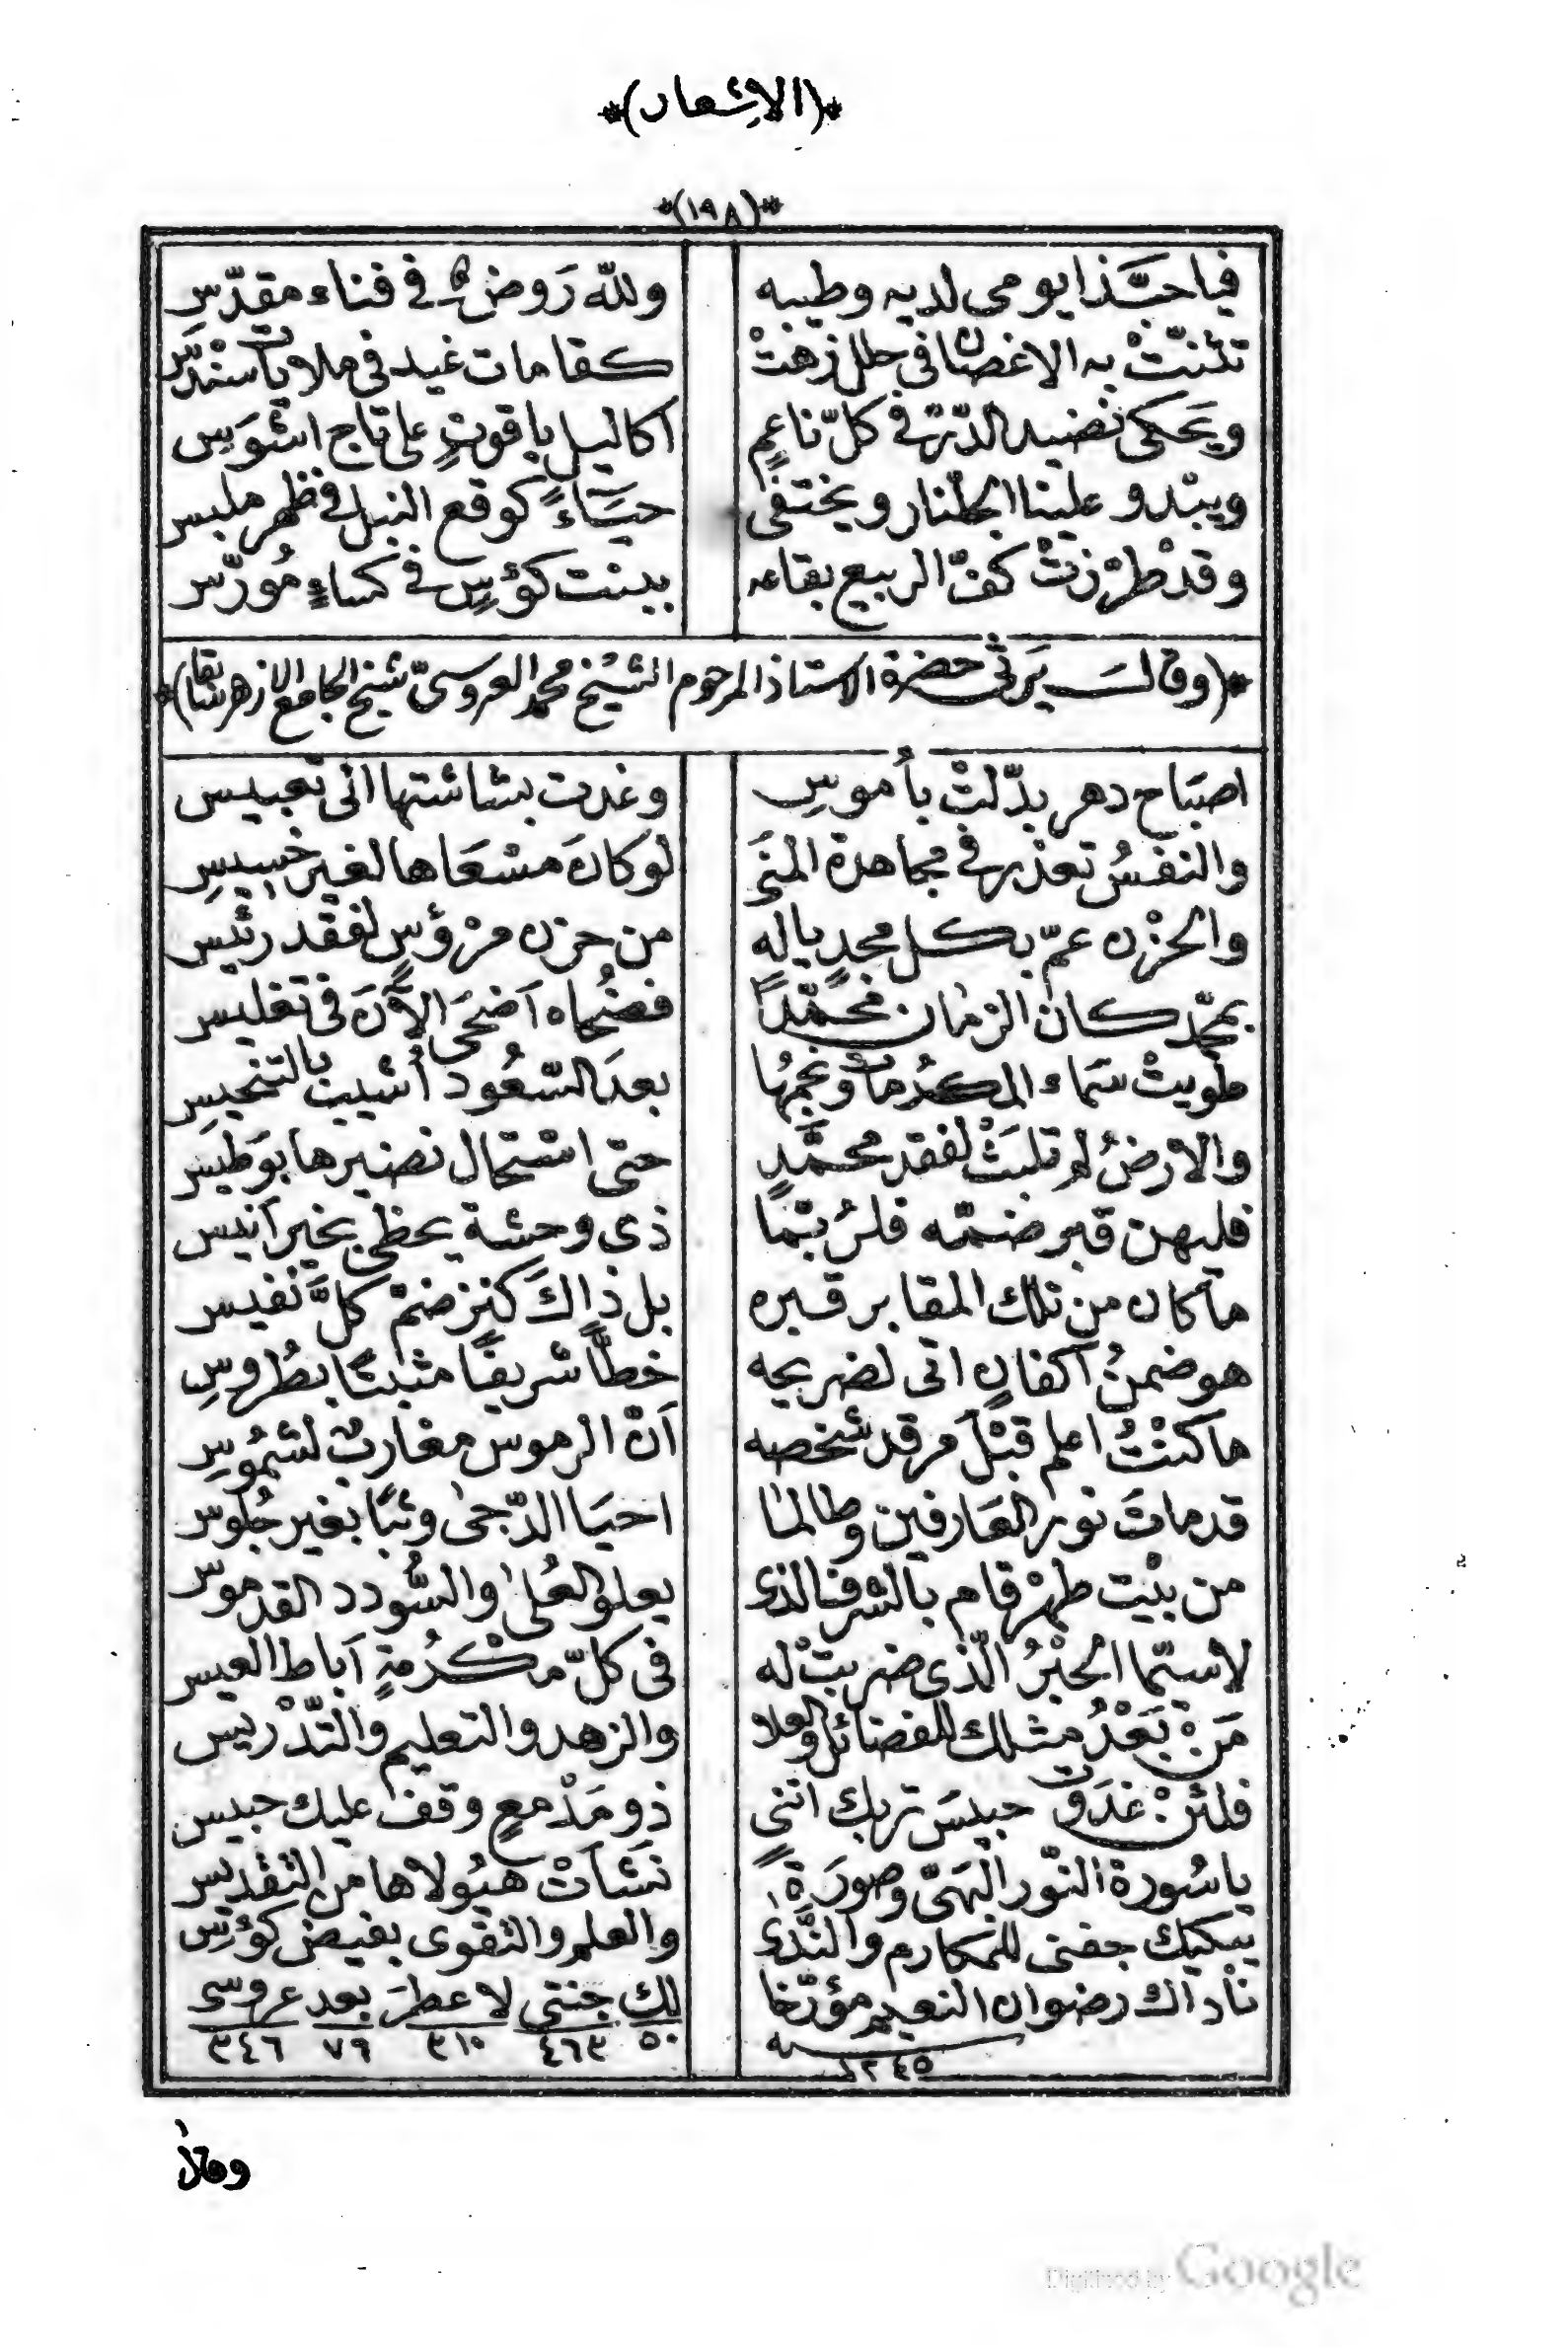 *(الاشعار)*
*(١٩٨)*
فيا حبَّذا يومى لديه وطيبه وللّه رَوضٌ في فناء مقدّسِ
تثنتّ به الاغصان في حلل زهَتْ كقامات غيد فى ملاءات سندسِ
ويَحكى نضيد الدّرّ في كلّ ناعمٍ اكاليل ياقوتٍ على تاج اشوَسِ
ويبْدو علينا الجلّنار ويختفى حيَاءً كوقع النبل في ظهر ملبس
وقدْ طرّزتْ كفّ الربيع بقاعه ببنت كؤسٍ في كساءٍ مُورّس
*(وقال يَرثى حضرة الاستاذ المرحوم الشيخ محمد العروسىّ شيخ الجامع الازهر سابقا)*
اصبَاح دهر بدّلتْ بأُموسِ وغدت بشاشتها الى تعبيس
والنفسُ تعذر في مجاهدة المنَى لو كانَ مسْعَاها لغير خسِيسِ
والحزْن عمّ بكل مجدٍ يا له من حزن مرْؤسٍ لفقد رئيس
بمحمّد كان الزمان محمَّدًا فضُحاه اَضحَى الآنَ في تغليس
طويتْ سَماء المكرُمات ونجمُها بعدَ السّعُود اُشيبَ بالتنحيس
والارضُ لم تلبَثْ لفقد محمَّدٍ حتى استحال نضيرها بوَطيس
فليهن قبر ضمّه فلرُبّما ذى وحشة يحظى بخير اَنيس
ما كان من تلك المقابر قبره بل ذاكَ كنز ضمّ كلَّ نفيس
هو ضمنُ اكفانٍ اتى لضريحه خطًّا شريفًا مثبتًا بطُروسِ
ما كنْتُ اعلم قبْلَ مرقد شخصه اَنّ الرموس مغاربٌ لشمُوسِ
قد ماتَ نور العَارفين وطالما احيَا الدّجى وثبًا بغير جُلوس
من بيْت طهْر قام بالشرف الذى يعلو العُلى والسُّودد القدموس
لا سيّما الحبْرُ الّذى ضربتْ له في كلّ مكرُمةٍ آباط العيس
مَنْ بَعْدُ مثلك للفضائل والعلا والزهد والتعليم والتّدْريس
فلئنْ غدَوتَ حبيسَ تربك اننى ذو مَدْمعٍ وقف عليك حبيس
يا سُورة النّور البَهىّ وصورَةً نشَأتْ هيُولاها من التقديس
يبكيك جفنى للمكارم والنّدى والعلم والتقوى بفيض كؤسِ
نادَاك رضوان النعيم مؤرّخا لك جنتى لا عطرَ بعد عروسى
سنة ١٢٤٥ ٥٠ ٤٦٣ ٣١٠ ٧٦ ٣٤٦
وقال
Digitized by Google